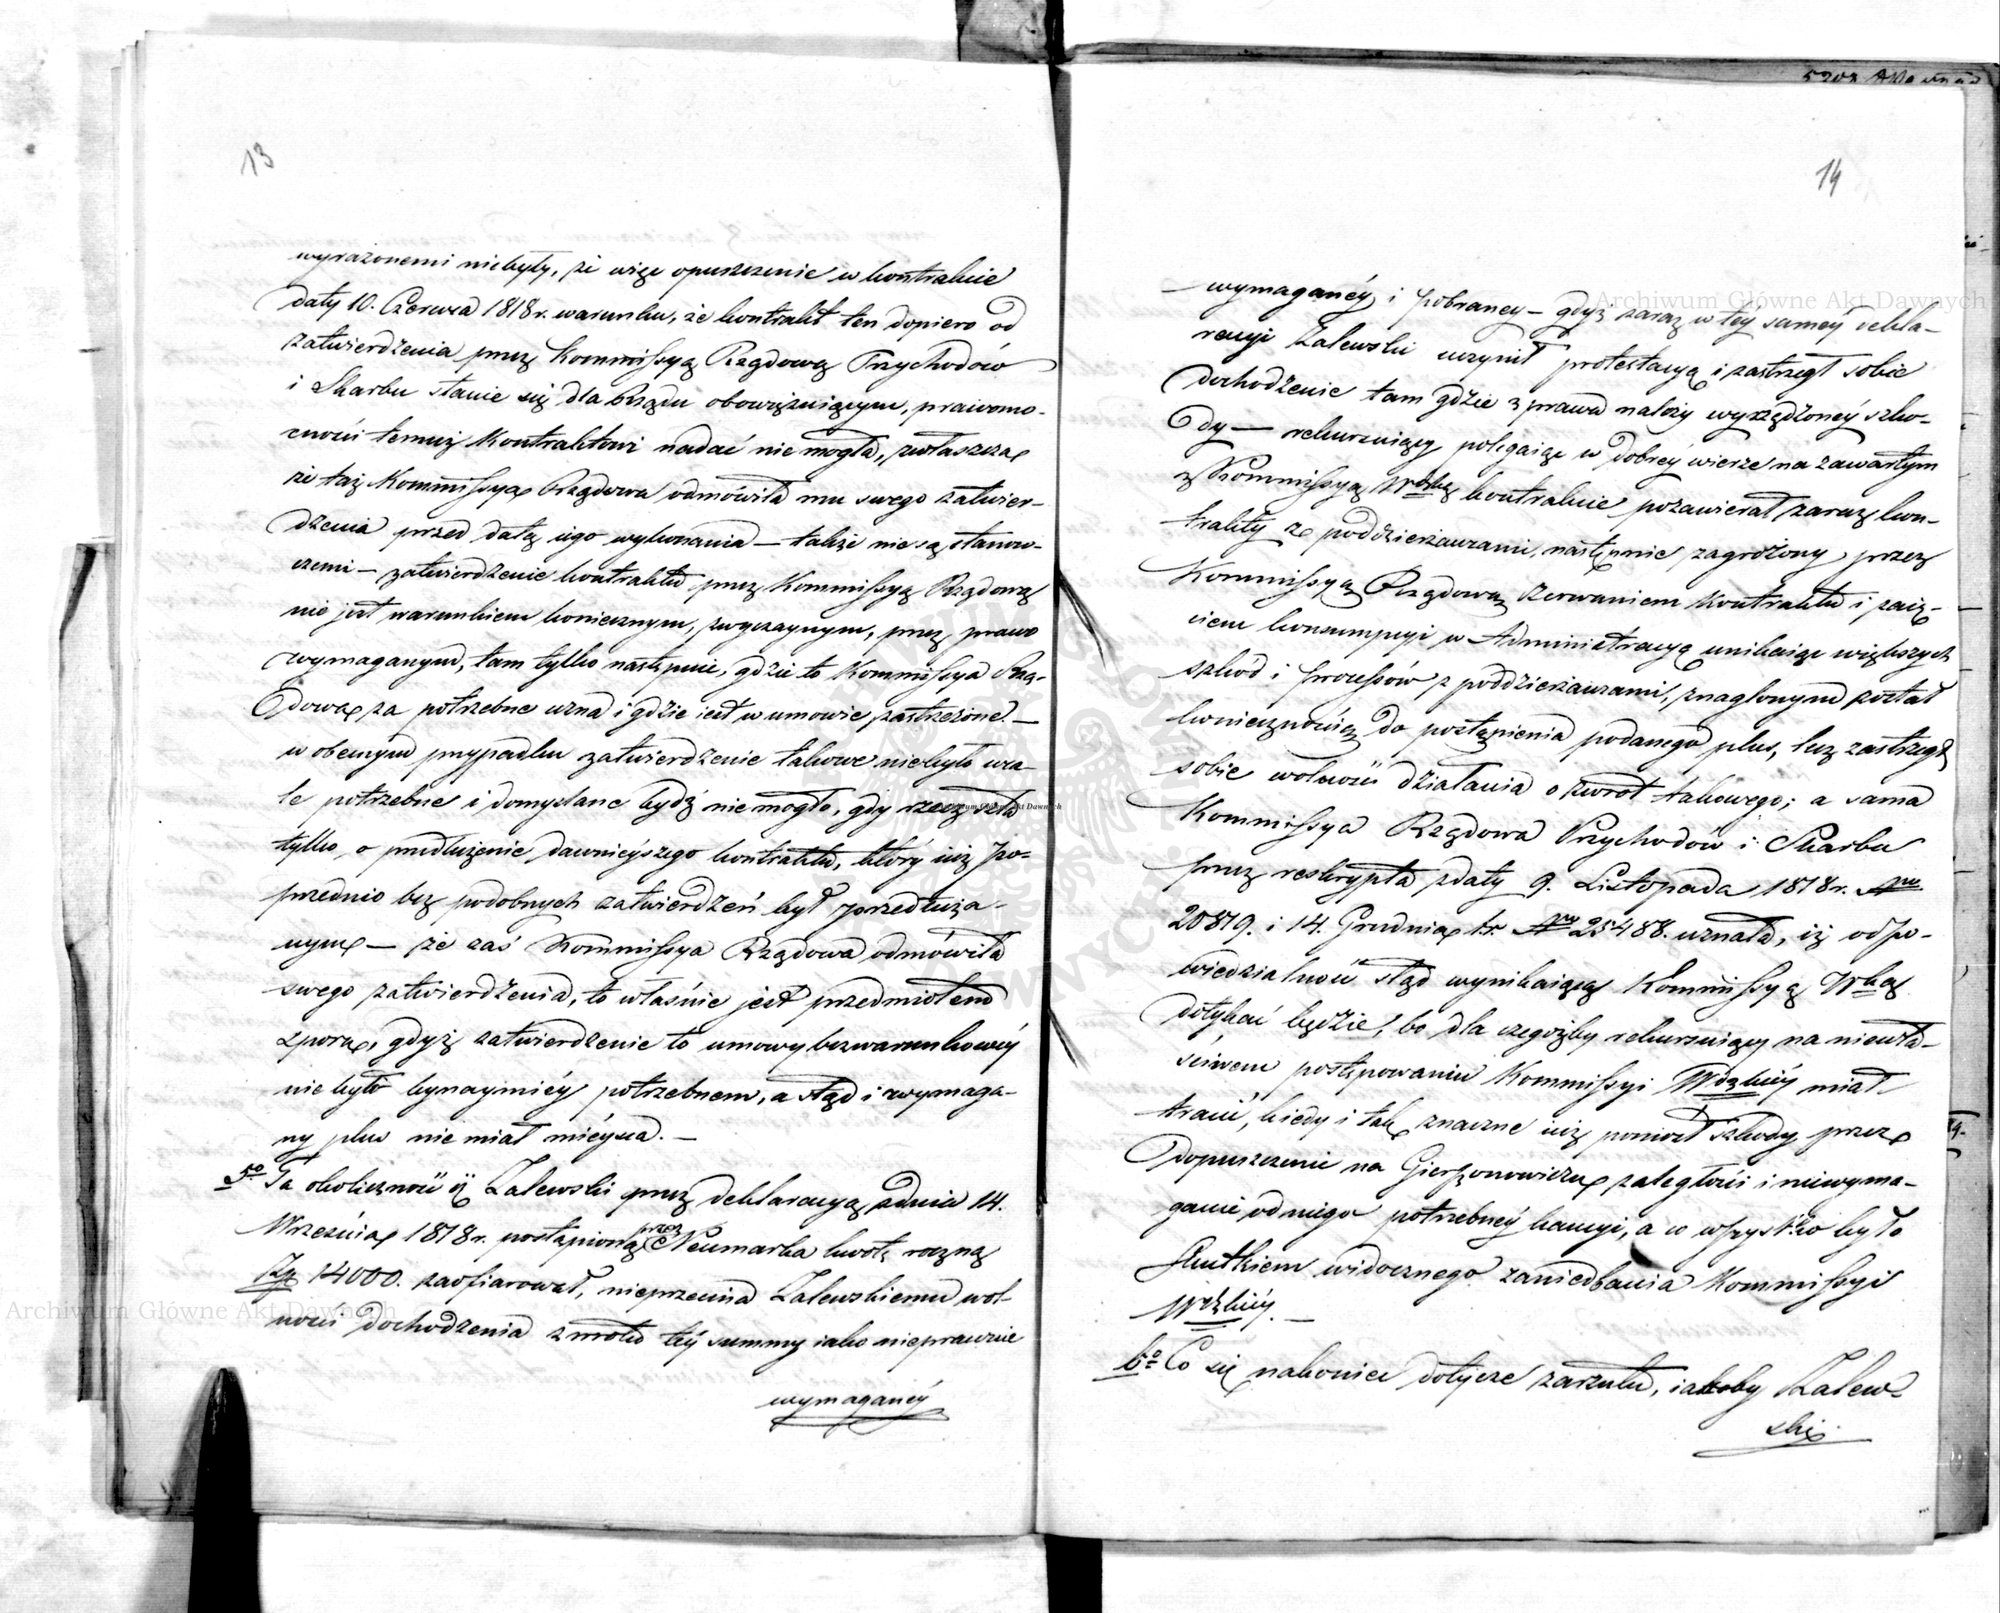 13
wyrażonemi niebyły, że więc opuszczenie w kontrakcie
daty 10. Czerwca 1818 r. warunku, że kontrakt ten dopiero od
zatwierdzenia przez Kommissyą Rządową Przychodów
i Skarbu stanie się dla Rządu obowiązuiącym, prawomo-
cności temuż Kontraktowi nadać nie mogła, zwłaszcza
że taż Kommissya Rządowa odmówiła mu swego zatwier-
dzenia przed datą iego wykonania — także nie są stanow-
czemi — zatwierdzenie kontraktu przez Kommissyą Rządową
nie jest warunkiem koniecznym, zwyczaynym, przez prawo
wymaganym, tam tylko następuie, gdzie to Kommissya Rzą-
dowa za potrzebne uzna i gdzie iest w umowie zastrzeżone. —
w obecnym przypadku zatwierdzenie takowe niebyło wca-
le potrzebne i domyślane bydź nie mogło, gdy rzecz szła
tylko o przedłużenie dawnieyszego kontraktu, który iuż po-
przednio bez podobnych zatwierdzeń był przedłuża-
nym — że zaś Kommissya Rządowa odmówiła
swego zatwierdzenia, to właśnie jest przedmiotem
sporu, gdyż zatwierdzenie to umowy bezwarunkowéy
nie było bynaymniéy potrzebnem, a ztąd i wymaga-
ny plus nie miał mieysca. —
5o Ta okoliczność iż Zalewski przez deklaracyą z dnia 14.
Września 1818 r. postąpioną przez Neumarka kwotę roczną
Zp 14000. zaofiarował, nieprzecina Zalewskiemu wol-
ności dochodzenia zwrotu téy summy iako nieprawnie
wymaganéy
14
— wymaganéy i pobraney — gdyż zaraz w téy saméy dekla-
racyi Zalewski uczynił protestacyą i zastrzegł sobie
dochodzenie tam gdzie z prawa należy wyrządzonéy szko-
dy — rekursuiący polegaiąc w dobréy wierze na zawartym
z Kommissyą Wdzką kontrakcie pozawierał zaraz kon-
trakty z poddzierżawcami, następnie zagrożony przez
Kommissyą Rządową zerwaniem Kontraktu i zaię-
ciem konsumpcyi w Administracyą unikaiąc większych
szkód i processów z poddzierżawcami, znaglonym został
koniecznością do postąpienia podanego plus, lecz zastrzegł
sobie wolność działania o zwrot takowego; a sama
Kommissya Rządowa Przychodów i Skarbu
przez reskrypta z daty 9. Listopada 1818 r. Nro
20819. i 14. Grudnia t.r. Nro 25488. uznała, iż odpo-
wiedzialność ztąd wynikaiąca Kommissyą Wką
dotykać będzie, bo dla czegóżby rekursuiący na niewła-
ściwem postępowaniu Kommissyi Wdzkiéy miał
tracić, kiedy i tak znaczne iuż poniósł szkody przez
dopuszczenie na Gierszonowiczu zaległości i niewyma-
ganie od niego potrzebnéy kaucyi, a co wszystko było
skutkiem widocznego zaniedbania Kommissyi
Wdzkiéy. —
6o Co się nakoniec dotycze zarzutu, iakoby Zalew-
ski